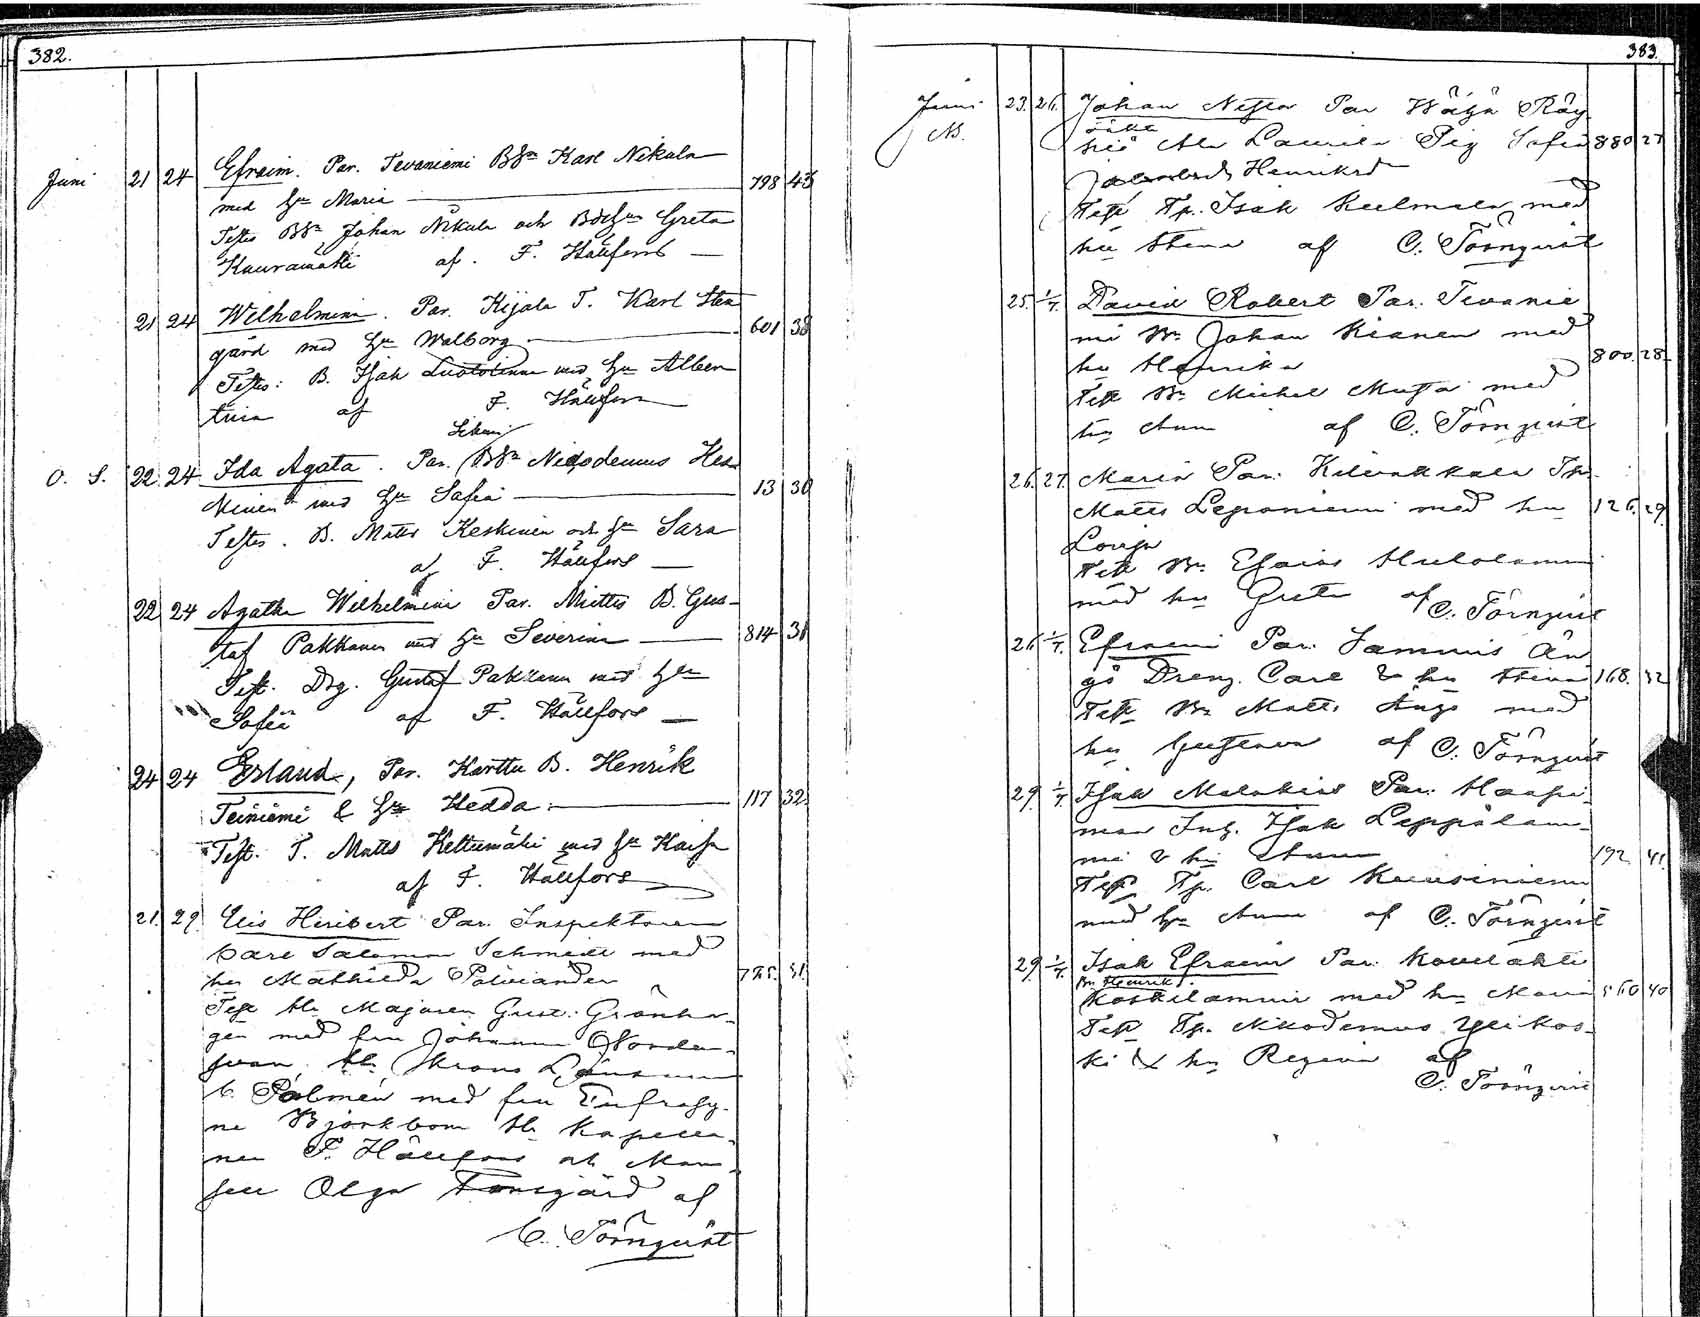 382.
Juni 21 24 Efraim. Par. Tevaniemi Bdn Karl Nikula
med hu Maria 798 43
Testes Bdn Johan Nikula och Greta
Kauramäki af. F. Hällfors
21 24 Wilhelmina. Par. Kijala T. Karl Sten
gård med hu Walborg 601 38
Testes: B. Isak med hu Alber
tina af F. Hällfors
O. S. 22 24 Ida Agata. Par. Bdn Nicodemus Kes
kinen med hu Sofia 13 30
Testes. B. Matts Keskinen och hu Sara
af F. Hällfors
22 24 Agatha Wilhelmina Par. Miettis B. Gus-
taf Pakkanen med hu Severina 814 31
Test. Drg. Gustaf Pakkanen med hu
Sofia af F. Hällfors
24 24 Erland, Par. Karttu B. Henrik
Teiniemi & hu Hedda 117 32
Test. T. Matts Keltumäki med hu Kaisa
af F. Hällfors
21. 29. Elis Heribert Par. Inspektoren
Carl Salomon Schmidt med
hu Mathilda Polviander
Test Hr Majoren Gust: Grönha-
gen med fru Johanna
Hr Krono Länsman
C. Palmén med fru Eufrosy-
ne Björkbom Hr Kapella-
nen F. Hällfors och Mam-
sell Olga Forsgård af
C. Törnqvist
383.
Juni 23. 26. Johan Nestor Par Röy
Laurila Pig Sofia 880 27
Henriksd
Test Tp. Isak Kulmala med
hu Stina af C. Törnqvist
25. 1/7. David Robert Par. Tevanie
mi Bn Johan Kianen med
hu Henrika 800. 28.
Test Bn Michel Musta med
hu Anna af C. Törnqvist
26. 27. Maria Par. Kilvakkala Tp.
Matts Leponiemi med hu 126. 29.
Lovisa
Test Bn Esaias
med hu Greta af C. Törnqvist
26. 1/7. Efraim Par. Jammis Än
gö Dreng. Carl & hu Stina 168. 32
Test Bn Matts Ängö med
hu Gustava af C. Törnqvist
29. 1/7. Isak Malakias Par: Haapi-
maa Inh. Isak Leppälam-
mi & hu Anna 192. 41.
Test Tp. Carl Kuusiniemi
med hu Anna af C. Törnqvist
29. 1/7. Isak Efraim Par: Kovelahti
Bn Henrik
Koskilammi med hu Maria 560 40
Test Tp. Nikodemus Ylikos-
ki & hu Regina af
C. Törnqvist